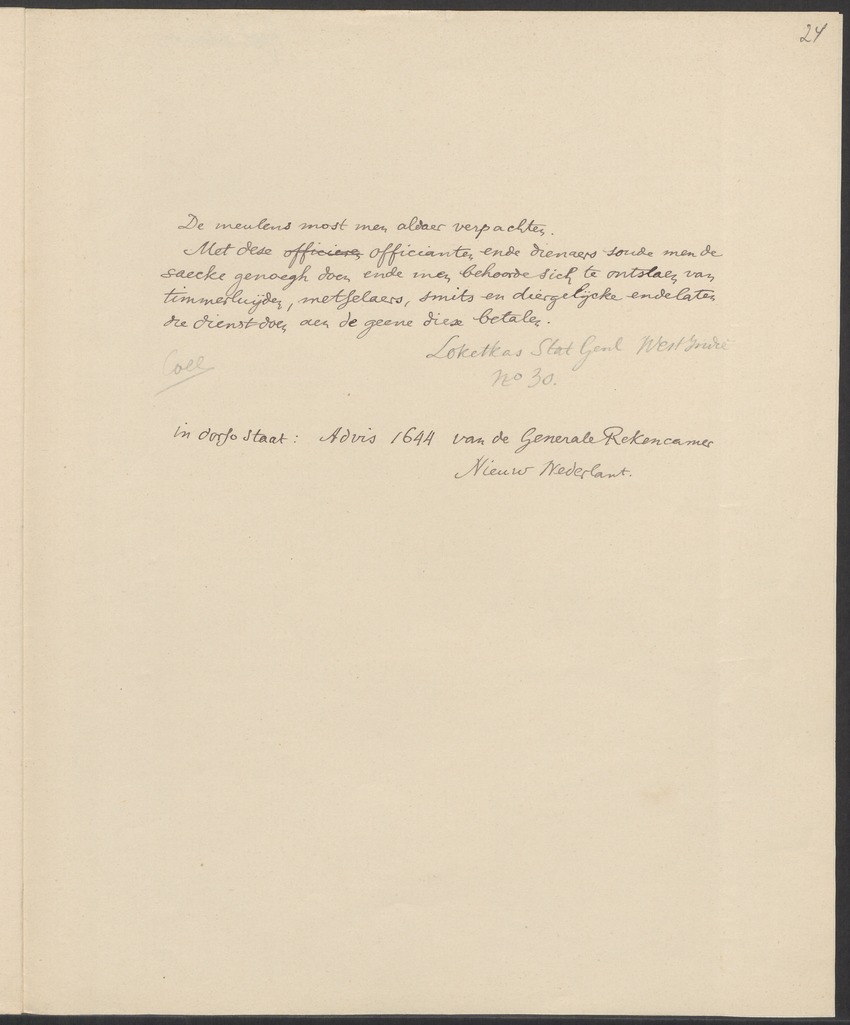 24
De meulens most men aldaer verpachten.
Met dese officieren officianten ende dienaers soude men de
saecke genoegh doen ende men behoorde sich te ontslaen van
timmerluijden, metselaers, smits en diergelijcke ende laten
die dienst doen aen de geene diese betalen.
Loketkas Stat Genl West Indie
No 30.
Coll
in dorso staat: Advis 1644 van de Generale Rekencamer
Nieuw Nederlant.